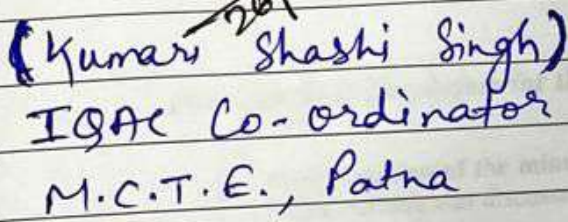 (Kumari Shashi Singh)
IQAC Co-ordinator
M.C.T.E., Patna